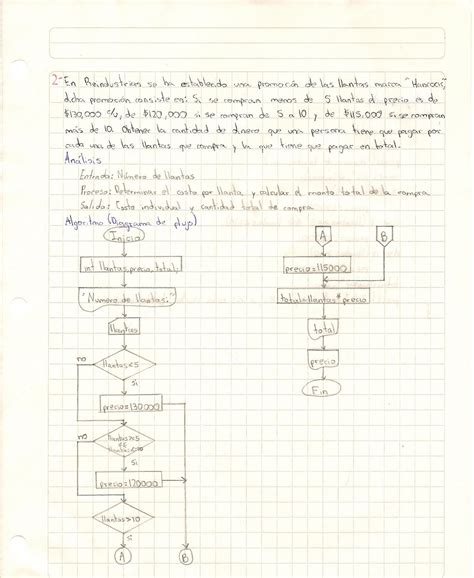 2-En Reindustrias se ha establecido una promoción de las llantas marca "Hancock",
dicha promoción consiste en: Si se compran menos de 5 llantas el precio es de
$130,000 c/u, de $120,000 si se compran de 5 a 10 y de $115,000 si se compran
más de 10. Obtener la cantidad de dinero que una persona tiene que pagar por
cada una de las llantas que compra y la que tiene que pagar en total.
Análisis
Entrada: Número de llantas
Proceso: Determinar el costo por llanta y calcular el monto total de la compra
Salida: Costo individual y cantidad total de compra
Algoritmo (Diagrama de flujo)
Inicio
int llantas, precio, total;
"Numero de llantas:"
llantas
llantas<5
no
si
precio=130000
llantas≥5
&&
llantas≤10
no
si
precio=120000
llantas>10
si
A
B
A
B
precio=115000
total=llantas*precio
total
precio
Fin